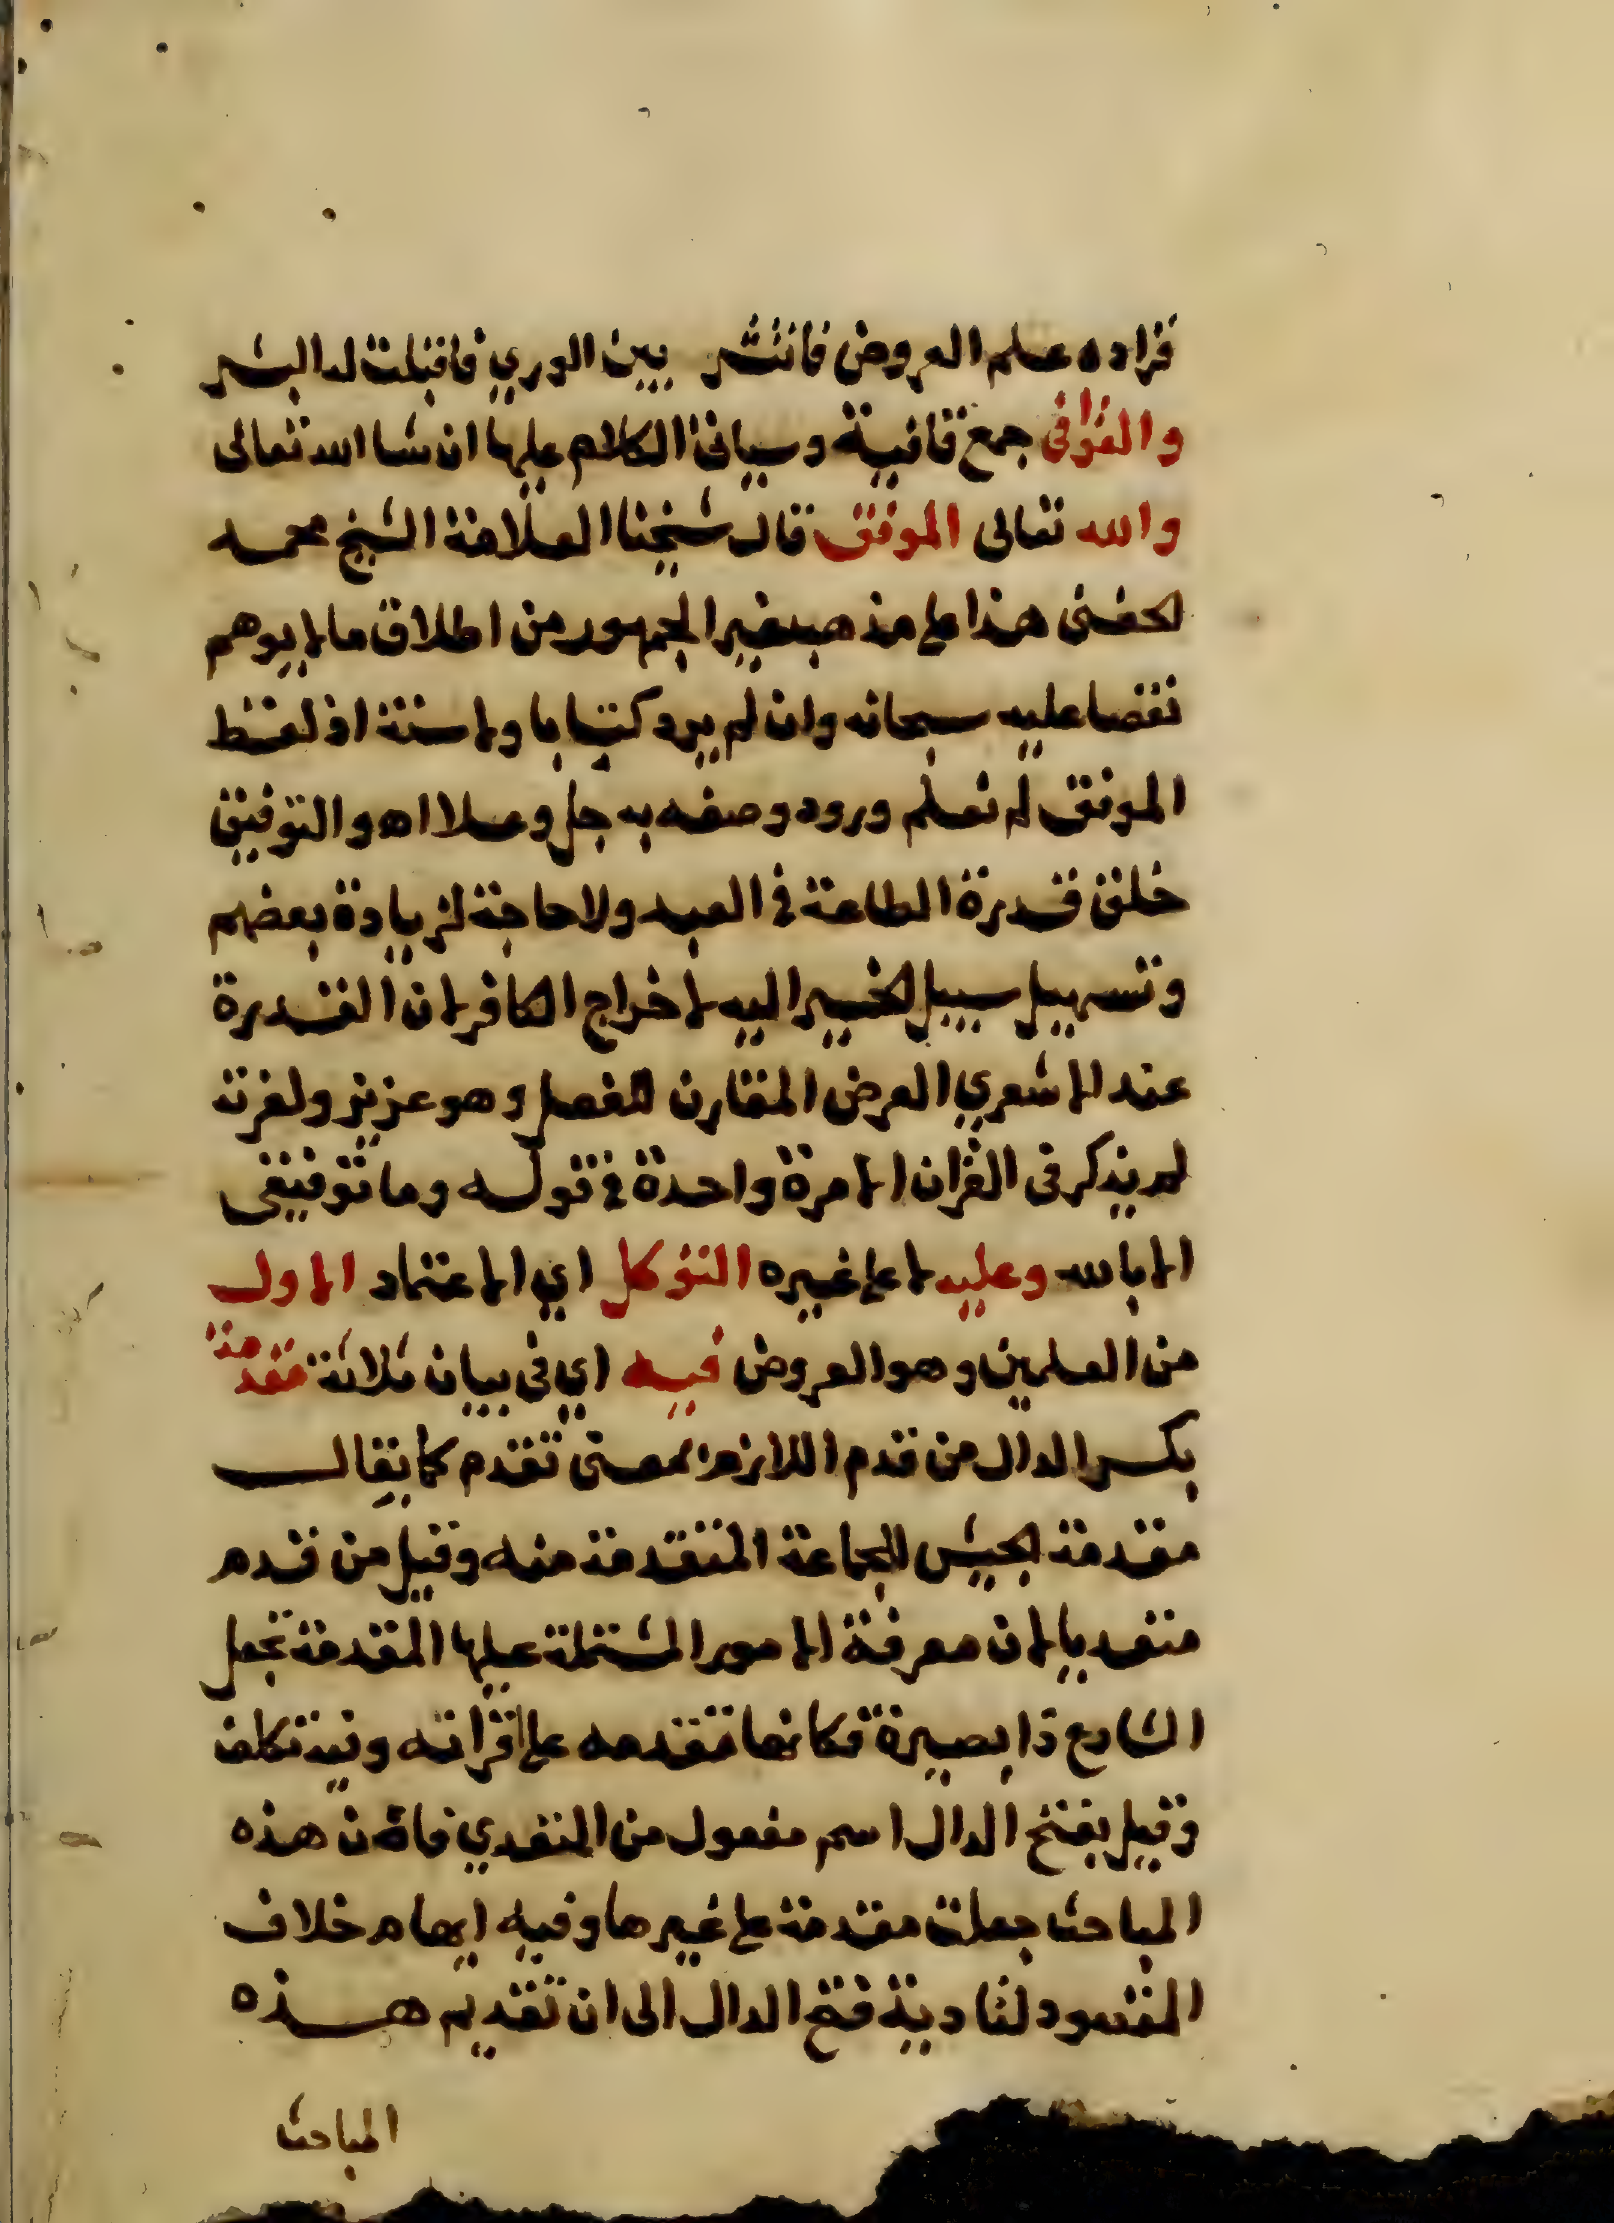 فزاده علم العروض فانتشر بين الوري فاقبلت له البشر
والقوافى جمع قافية وسياتى الكلام عليها ان شا الله تعالى
والله تعالى الموفق قال شيخنا العلامة الشيخ محمد
الحفنى هذا على مذهب غير الجمهور من اطلاق ما لا يوهم
نقصا عليه سبحانه وان لم يرد كتابا ولا سنة اذ لفظ
الموفق لم نعلم ورود وصفه به جل وعلا اه والتوفيق
خلق قدرة الطاعة في العبد ولا حاجة لزيادة بعضهم
وتسهيل سبيل الخير اليه لاخراج الكافر لان القدرة
عند الاشعري العرض المقارن للفعل وهو عزيز ولعزته
لم يذكر فى القران الا مرة واحدة في قوله وما توفيقى
الا بالله وعليه لا على غيره التوكل اي الاعتماد الاول
من العلمين وهو العروض فيه اي فى بيان ثلاثة مقدمة
بكسر الدال من قدم اللازم بمعنى تقدم كما يقال
مقدمة الجيش للجماعة المتقدمة منه وقيل من قدم
متعديا لان معرفة الامور المشتملة عليها المقدمة تجعل
الشارع ذا بصيرة فكانها تقدمه على اقرانه وفيه تكلف
وقيل بفتح الدال اسم مفعول من المتعدي فان هذه
المباحث جعلت مقدمة على غيرها وفيه ايهام خلاف
المقسود لتادية فتح الدال الى ان تقديم هذه
المباحث